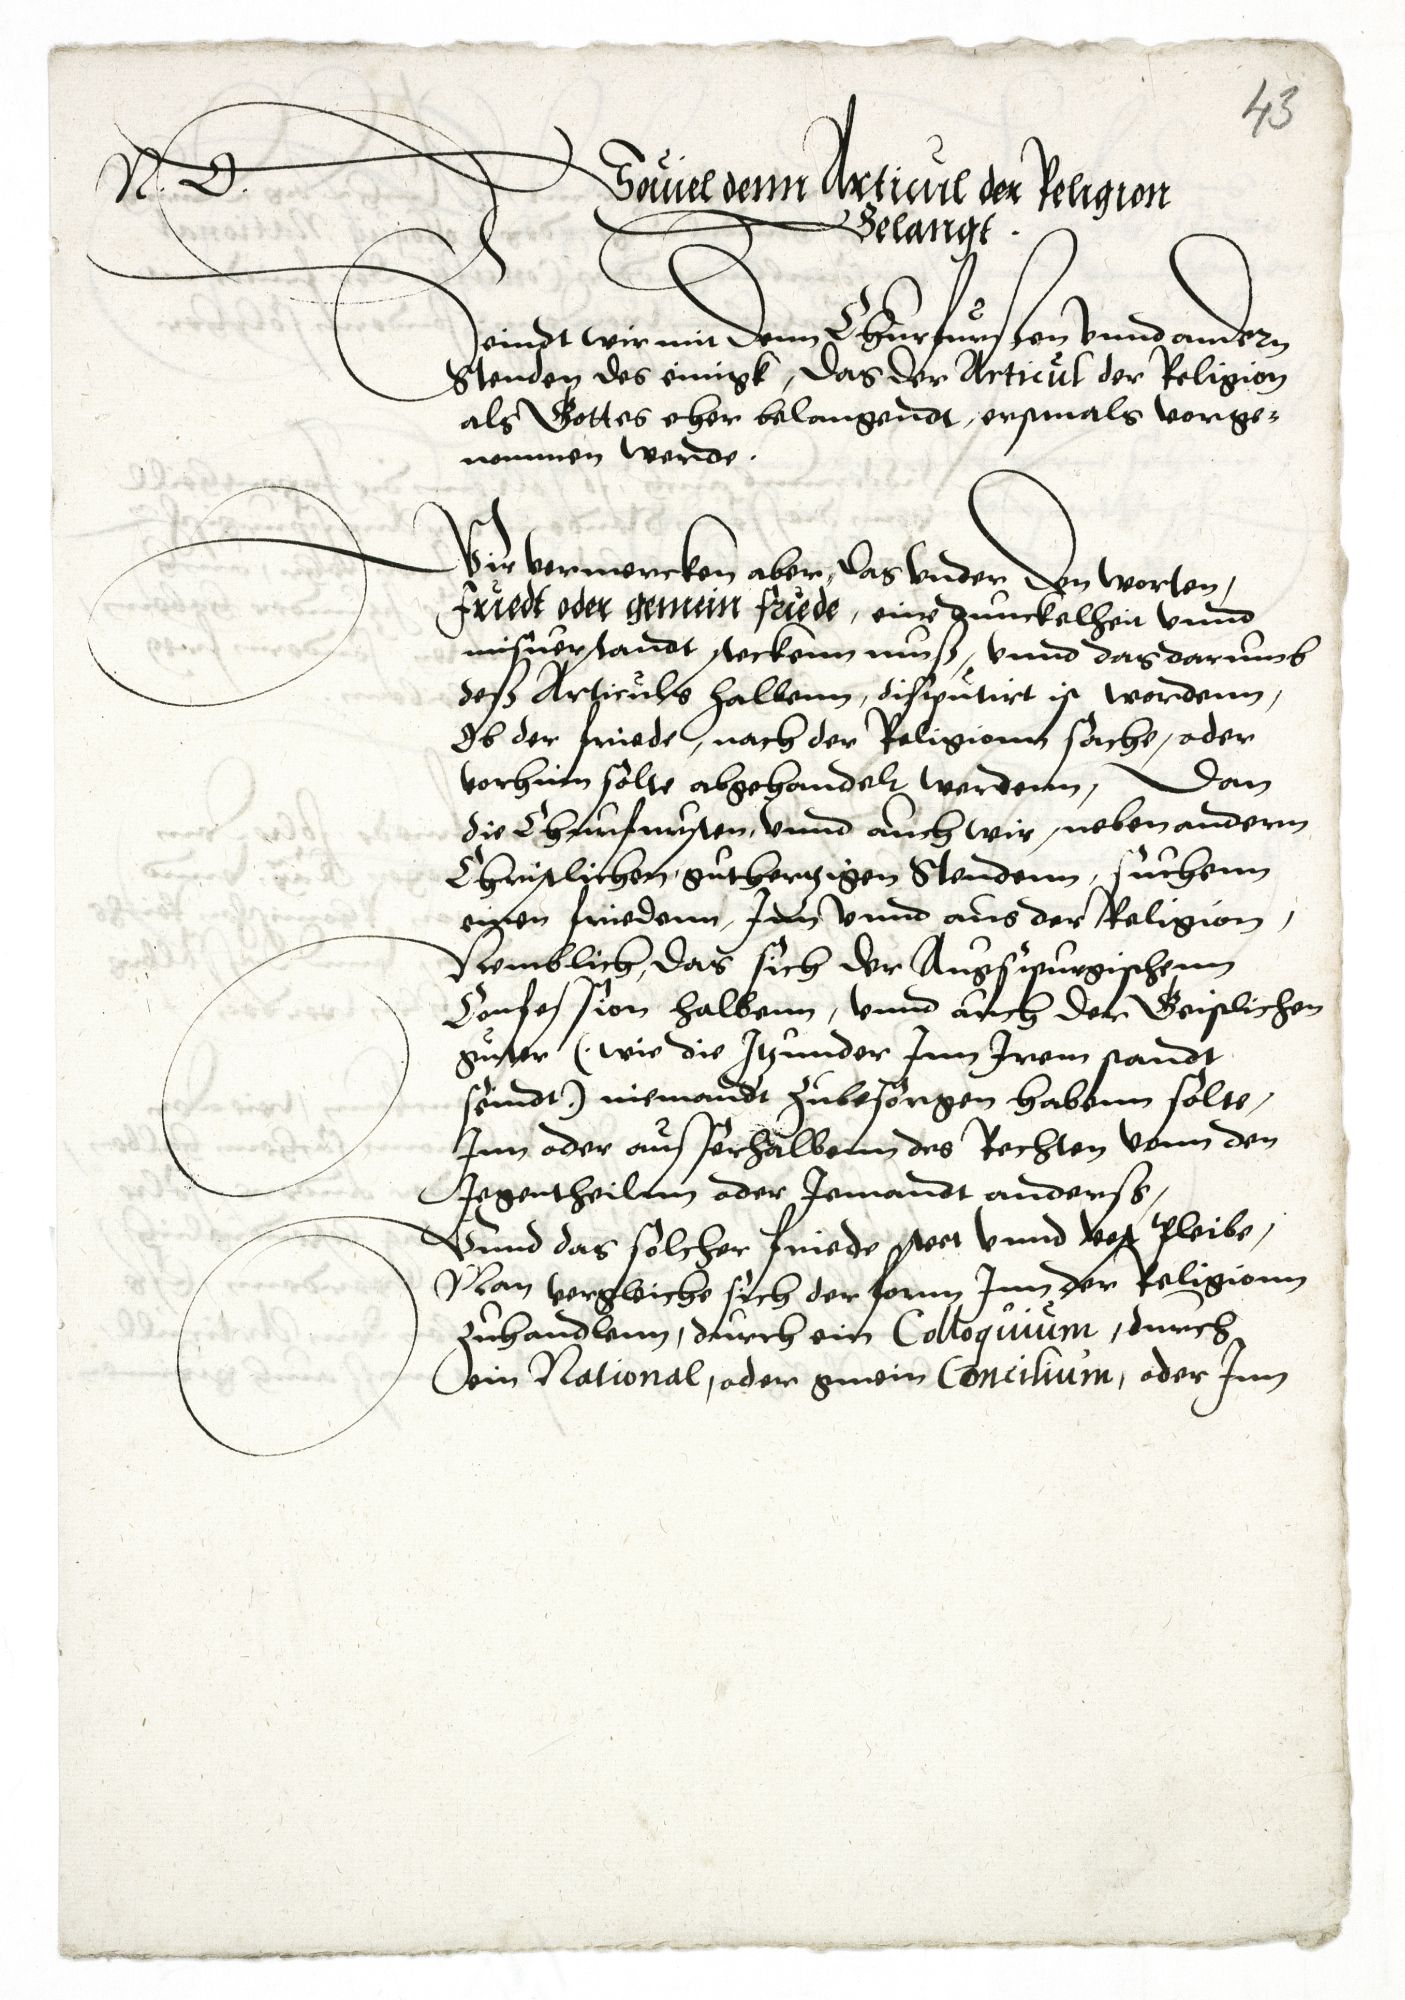 43
N. O.
Souiel denn Articul der Religion
Belangt.
Seindt wir mit denn Churfursten vnnd andern
Stenden des einigk, das der Articul der Religion
als Gottes eher belangendt, erstmals vorge-
nommen werde.
Wir vermercken aber, das vnder den worten,
friedt oder gemein friede, eine dunckelheit vnnd
misuerstandt steckenn muß, vnnd das darumb
deß Articuls halbenn, disputirt ist wordenn,
Ob der friede, nach der Religionn sache, oder
vorhinn solte abgehandelt werdenn, Dan
die Churfursten, vnnd auch wir, neben andern
Christlichen, guthertzigen Stendenn, suchenn
einen friedenn, Inn vnnd aus der Religion,
Nemblich, das sich der Augspurgischenn
Confession halbenn, vnnd auch der Geistlichen
guter (wie die Itzunder Inn Irem standt
seindt) niemandt zubesorgen habenn solte,
Inn oder ausserhalbenn des Rechten vonn den
Jegentheilnn oder Jemandt anderss,
Vnnd das solcher friede stet vnnd vest pleibe,
Man vergleiche sich der form Inn der Religionn
zuhandlenn, durch ein Colloquium, durch
ein National, oder gmein Concilium, oder Inn